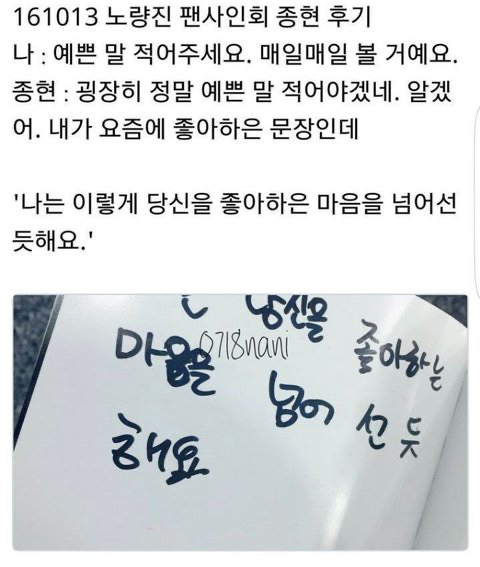 161013 노량진 팬사인회 종현 후기
나 : 예쁜 말 적어주세요. 매일매일 볼 거예요.
종현 : 굉장히 정말 예쁜 말 적어야겠네. 알겠
어. 내가 요즘에 좋아하은 문장인데
'나는 이렇게 당신을 좋아하은 마음을 넘어선
듯해요.'
당신을 좋아하는
마음을 넘어 선 듯
해요
0718nani